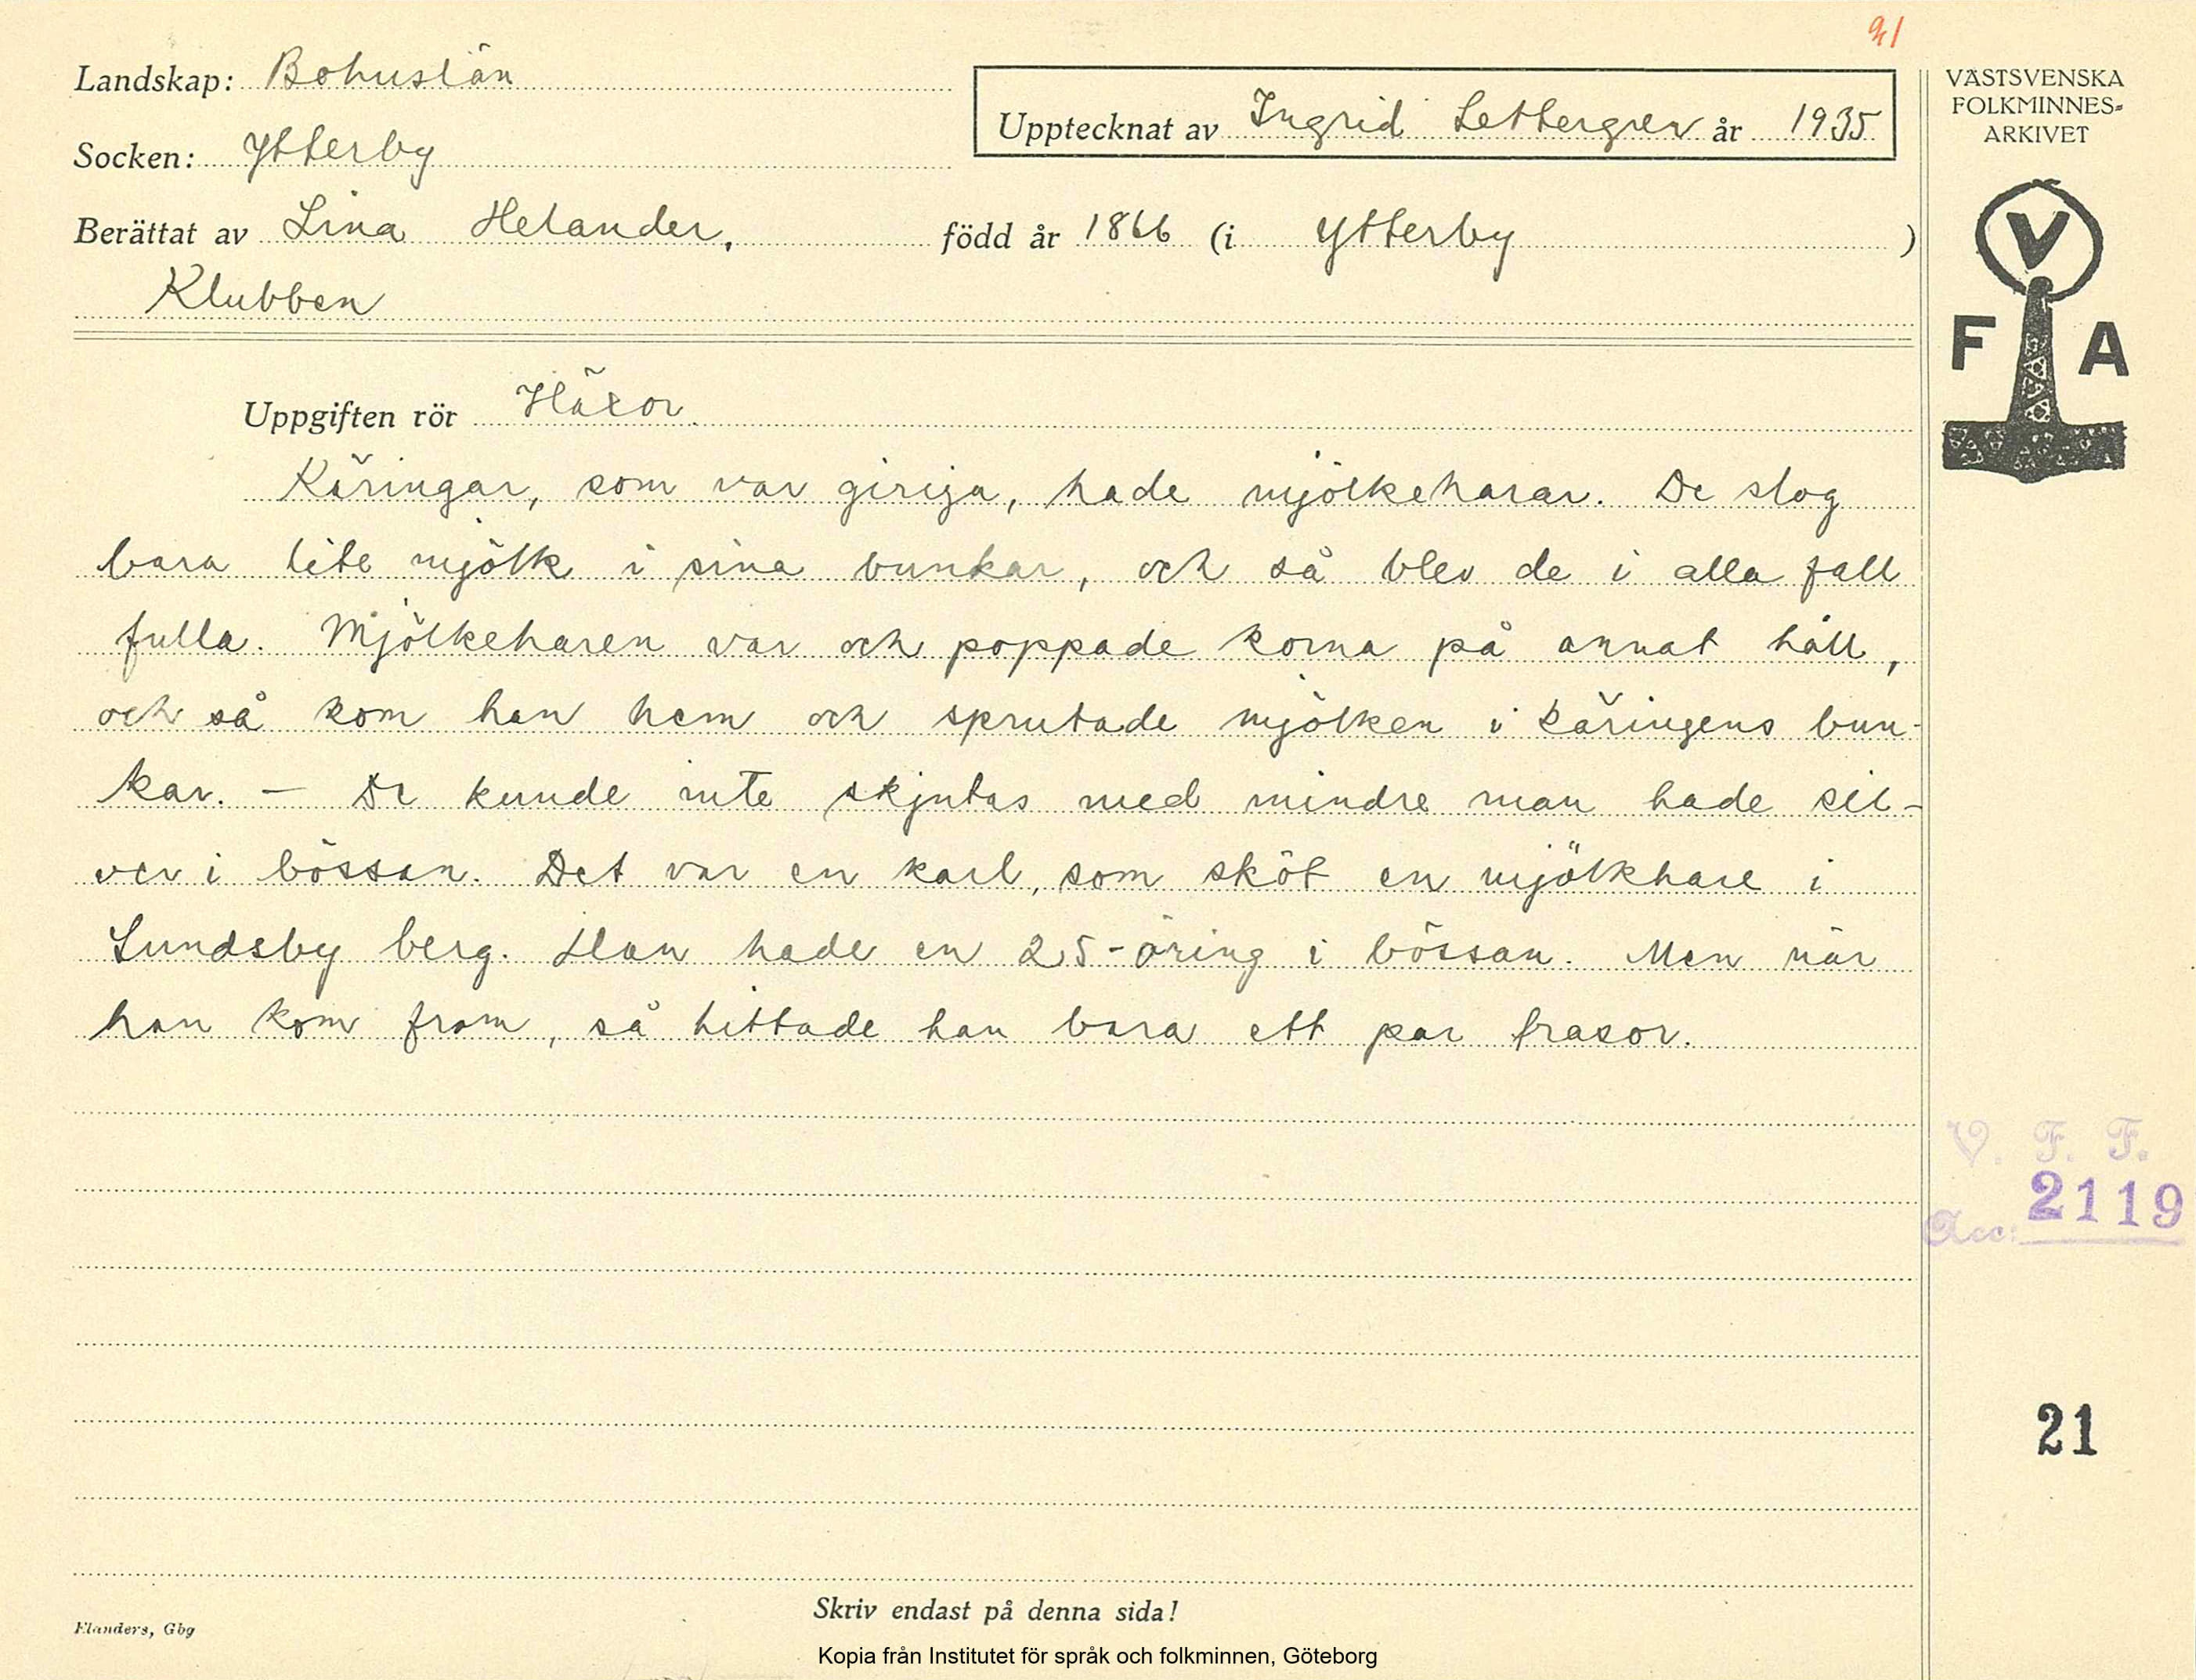 21
Landskap: Bohuslän
Upptecknat av Ingrid Settergren år 1935
VÄSTSVENSKA
FOLKMINNES-
ARKIVET
Socken: Ytterby
Berättat av Lina Helander, född år 1866 (i Ytterby )
Klubben
V
F A
Uppgiften rör Häxor.
Käringar, som var giriga, hade mjölkeharar. De slog
bara lite mjölk i sina bunkar, och så blev de i alla fall
fulla. Mjölkeharen var och poppade korna på annat håll,
och så kom han hem och sprutade mjölken i käringens bun-
kar. — De kunde inte skjutas med mindre man hade sil-
ver i bössan. Det var en karl, som sköt en mjölkhare i
Lundsby berg. Han hade en 25-öring i bössan. Men när
han kom fram, så hittade han bara ett par trasor.
V. F. F.
Acc: 2119
21
Skriv endast på denna sida!
Elanders, Gbg
Kopia från Institutet för språk och folkminnen, Göteborg